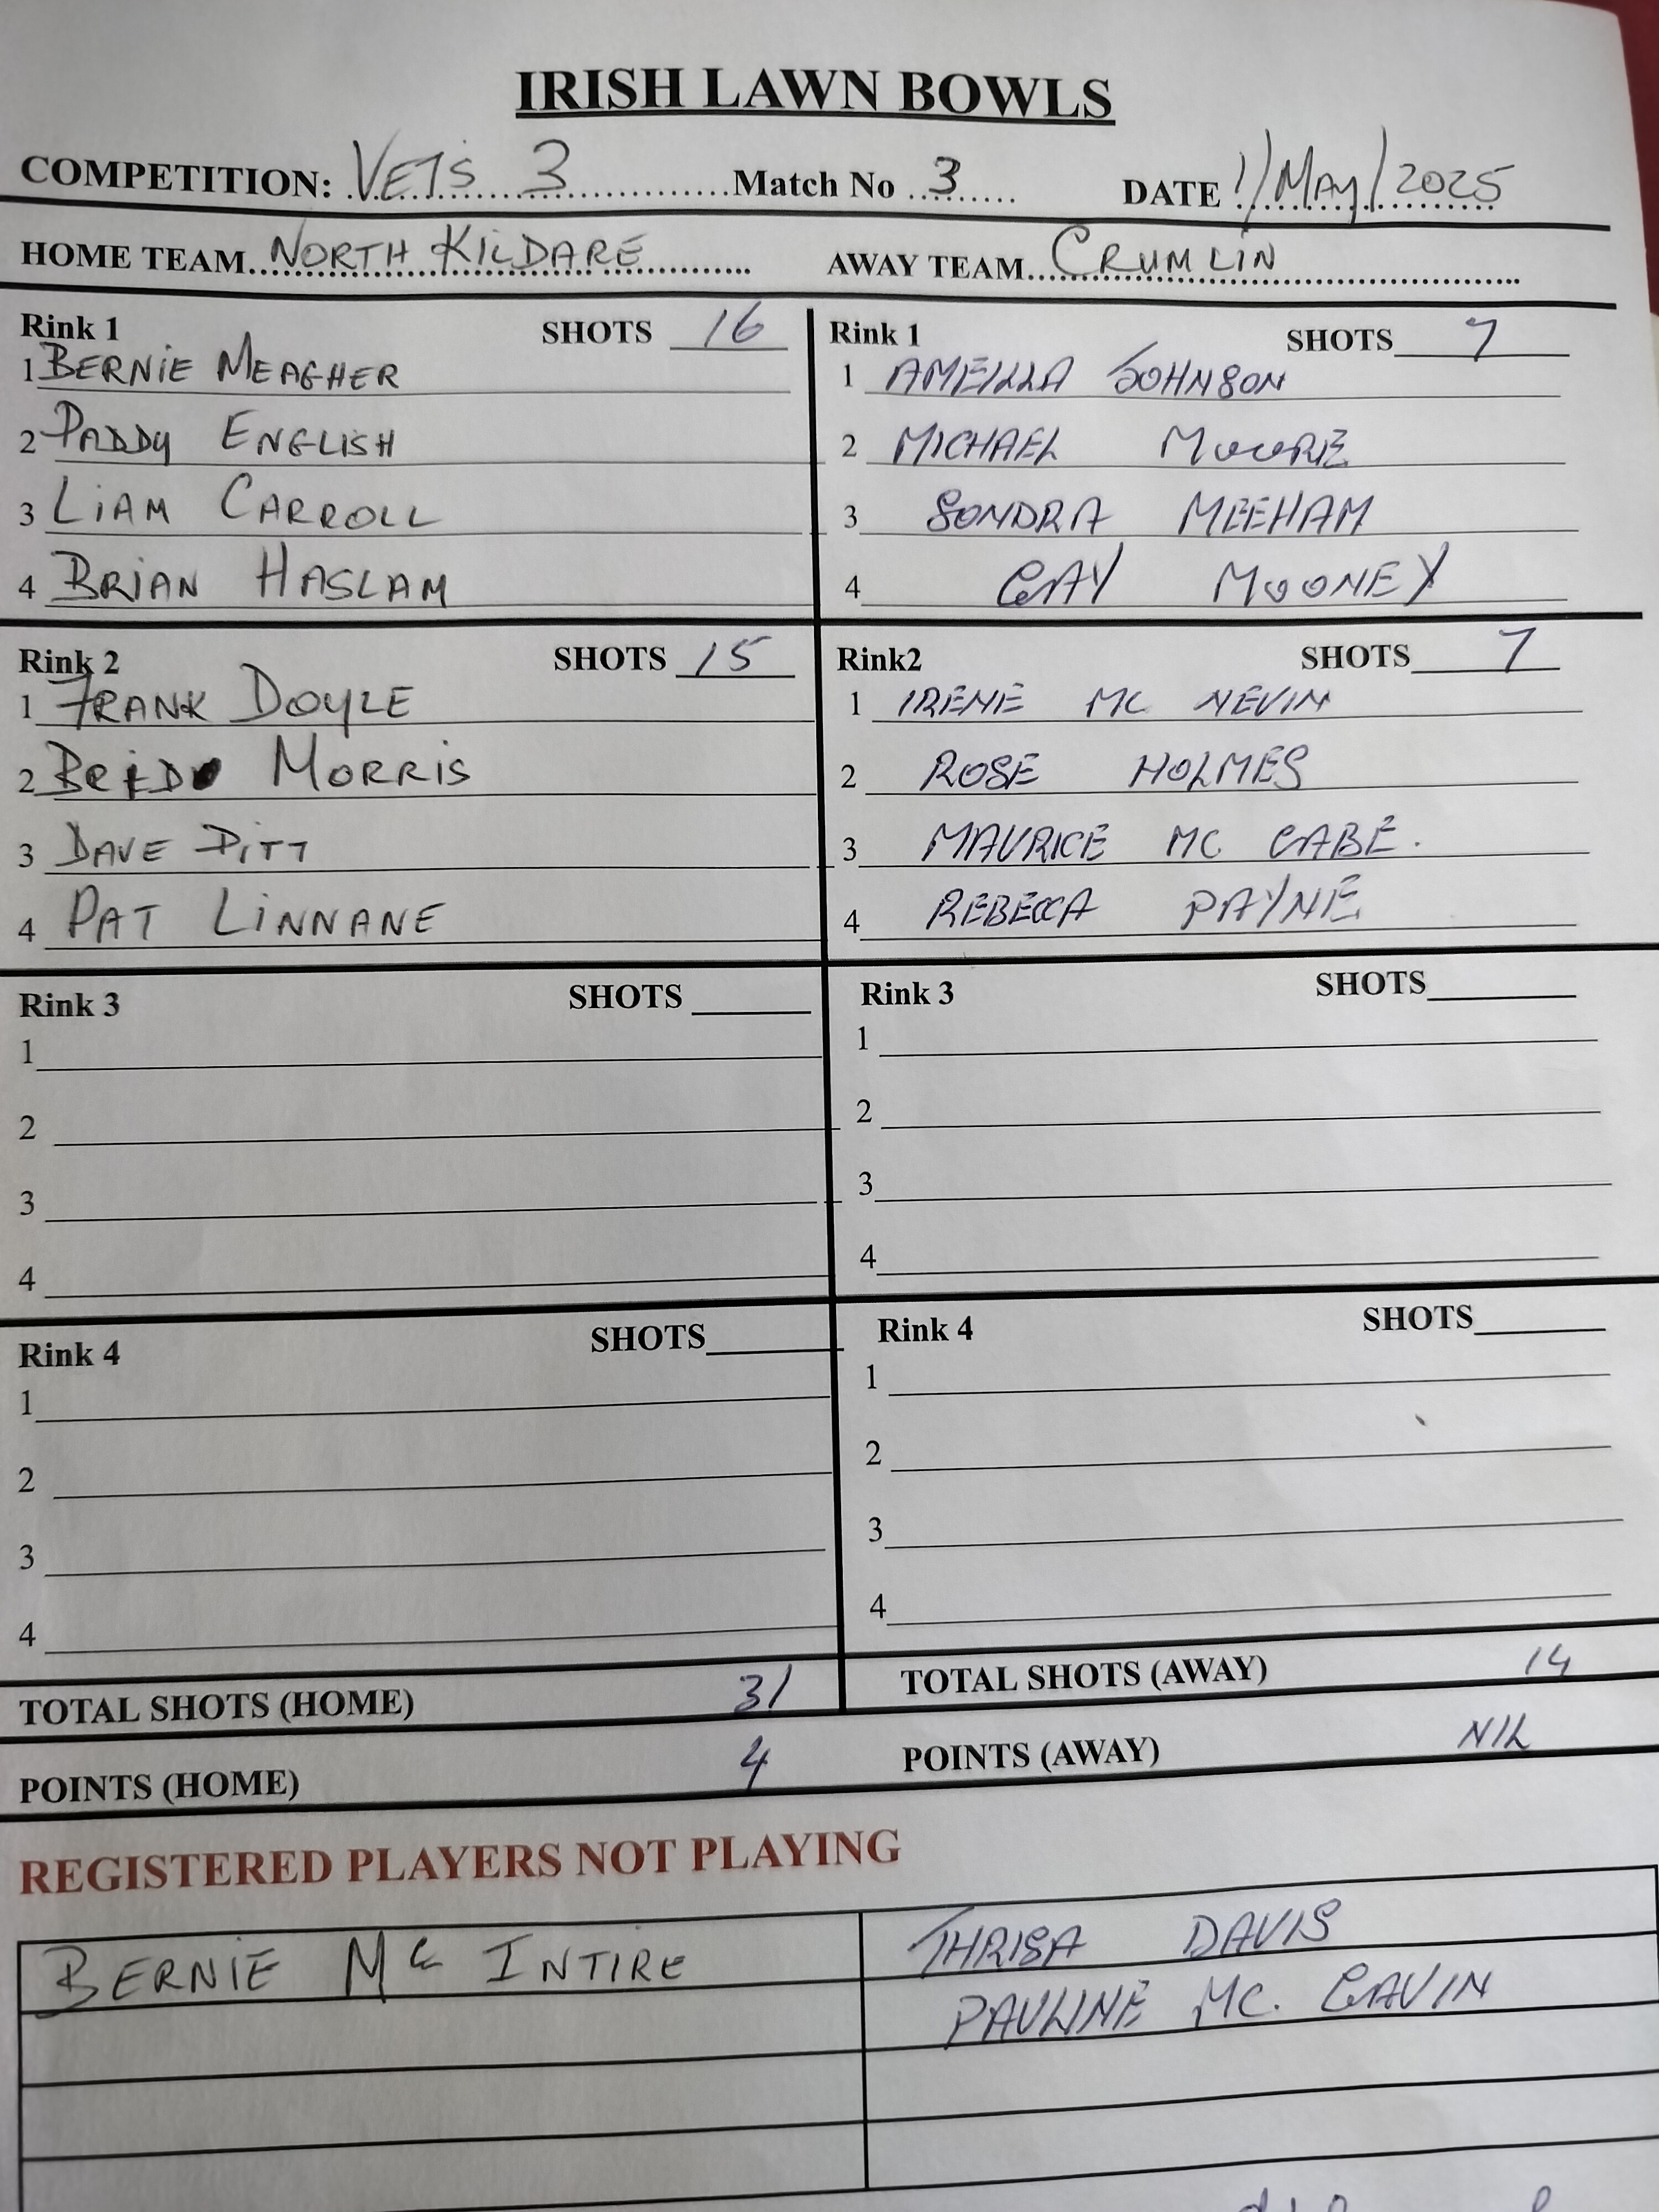 IRISH LAWN BOWLS
COMPETITION: VETS 3 Match No 3 DATE 1/MAY/2025
HOME TEAM NORTH KILDARE AWAY TEAM CRUMLIN
Rink 1 SHOTS 16 Rink 1 SHOTS 7
1 BERNIE MEAGHER 1 AMEILLA JOHNSON
2 PADDY ENGLISH 2 MICHAEL MOORE
3 LIAM CARROLL 3 SONDRA MEEHAM
4 BRIAN HASLAM 4 GAY MOONEY
Rink 2 SHOTS 15 Rink2 SHOTS 7
1 FRANK DOYLE 1 IRENE MC NEVIN
2 MORRIS 2 ROSE HOLMES
3 DAVE PITT 3 MAURICE MC CABE.
4 PAT LINNANE 4 REBECCA PAYNE
Rink 3 SHOTS Rink 3 SHOTS
1 1
2 2
3 3
4 4
Rink 4 SHOTS Rink 4 SHOTS
1 1
2 2
3 3
4 4
TOTAL SHOTS (HOME) 31 TOTAL SHOTS (AWAY) 14
POINTS (HOME) 4 POINTS (AWAY) NIL
REGISTERED PLAYERS NOT PLAYING
BERNIE Mc INTIRE THRISA DAVIS
PAULINE MC. GAVIN